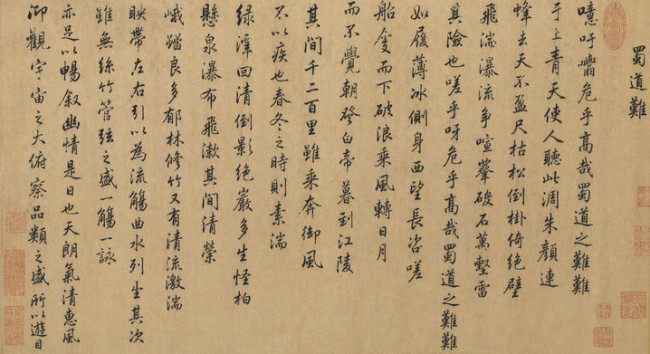 蜀道難
噫吁嚱危乎高哉蜀道之難難
于上青天使人聽此凋朱顏連
峰去天不盈尺枯松倒掛倚絕壁
飛湍瀑流爭喧破石萬壑雷
其險也嗟乎呀危乎高哉蜀道之難難
如履薄冰側身西望長咨嗟
船而下破浪乘風轉日月
而不覺朝發白帝暮到江陵
其間千二百里雖乘奔御風
不以疾也春冬之時則素湍
綠潭回清倒影絕巖多生怪柏
懸泉瀑布飛漱其間清榮
峨良多郁林修竹又有清流激湍
映帶左右引以為流觴曲水列坐其次
雖無絲竹管弦之盛一觴一詠
亦足以暢叙幽情是日也天朗氣清惠風
觀宇宙之大俯察品類之盛所以遊目